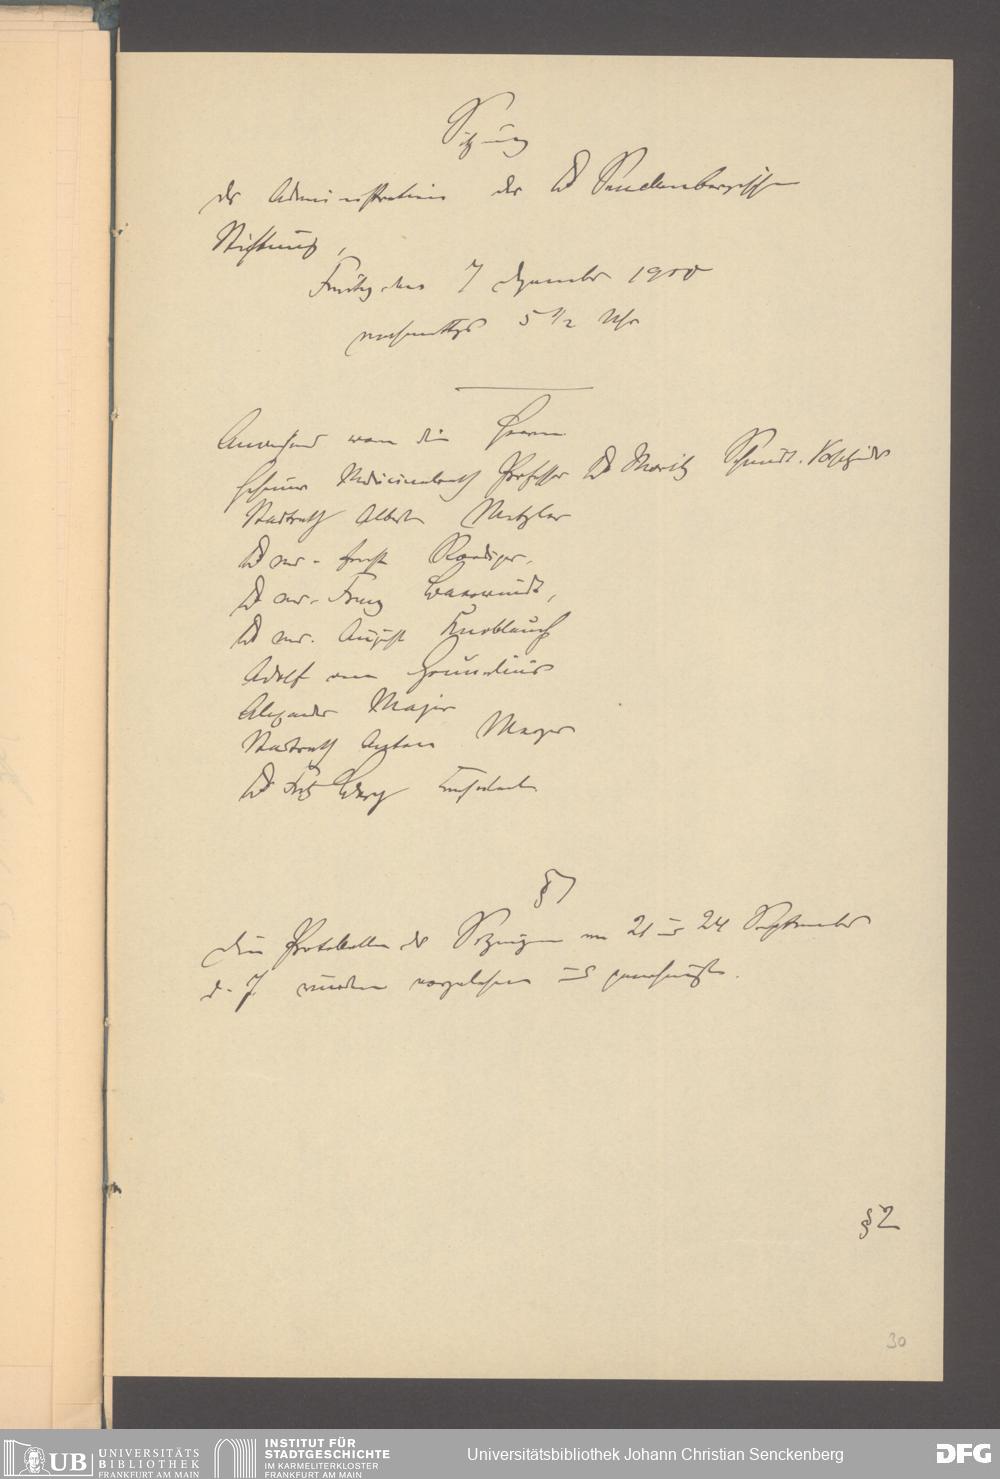 Sitzung
der Administration der Dr Senckenbergischen
Stiftung,
Freitag den 7 Dezember 1900
nachmittags 5 1/2 Uhr
Anwesend waren die Herren
Geheimer Medicinalrath Professor Dr Moritz Schmidt, Vorsitzender
Stadtrath Albert Metzler
Dr med. Ernst Roediger,
Dr med. Franz Bärwindt,
Dr med. August Knoblauch
Adolf von Grunelius
Alexander Majer
Stadtrath Anton Meyer
Dr Fritz Berg Konsulent
§ 1
Die Protokolle der Sitzungen vom 21 und 24 September
d. J. wurden vorgelesen und genehmigt.
§ 2
30
UB UNIVERSITÄTS
BIBLIOTHEK
FRANKFURT AM MAIN
INSTITUT FÜR
STADTGESCHICHTE
IM KARMELITERKLOSTER
FRANKFURT AM MAIN
Universitätsbibliothek Johann Christian Senckenberg
DFG